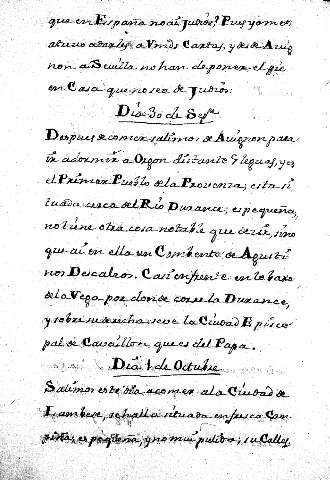 que en España no ai Judios? Pues yo me
atrevo a darles a Vmds Cartas, y desde Avig
non a Sevilla no han de poner el pie
en Casa que no sea de Judios.
Dia 30 de Sepe
Despues de comer salimos de Avignon para
ir a dormir a Orgon distante 5 leguas, y es
el Primer Pueblo de la Provenza; esta si
tuada cerca del Rio Durance; es pequeña,
no tiene otra cosa notable que decir, sino
que ai en ella un Combento de Agusti
nos Descalzos. Casi enfrente en lo baxo
de la Vega por donde corre la Durance,
y sobre su derecha se ve la Ciudad Episco
pal de Cavaillon que es del Papa.
Dia 1 de Octubre
Salimos este dia a comer a la Ciudad de
Lambese, se halla situada en fresca Com
piña; es pequeña, y no mui pulida; su Calles